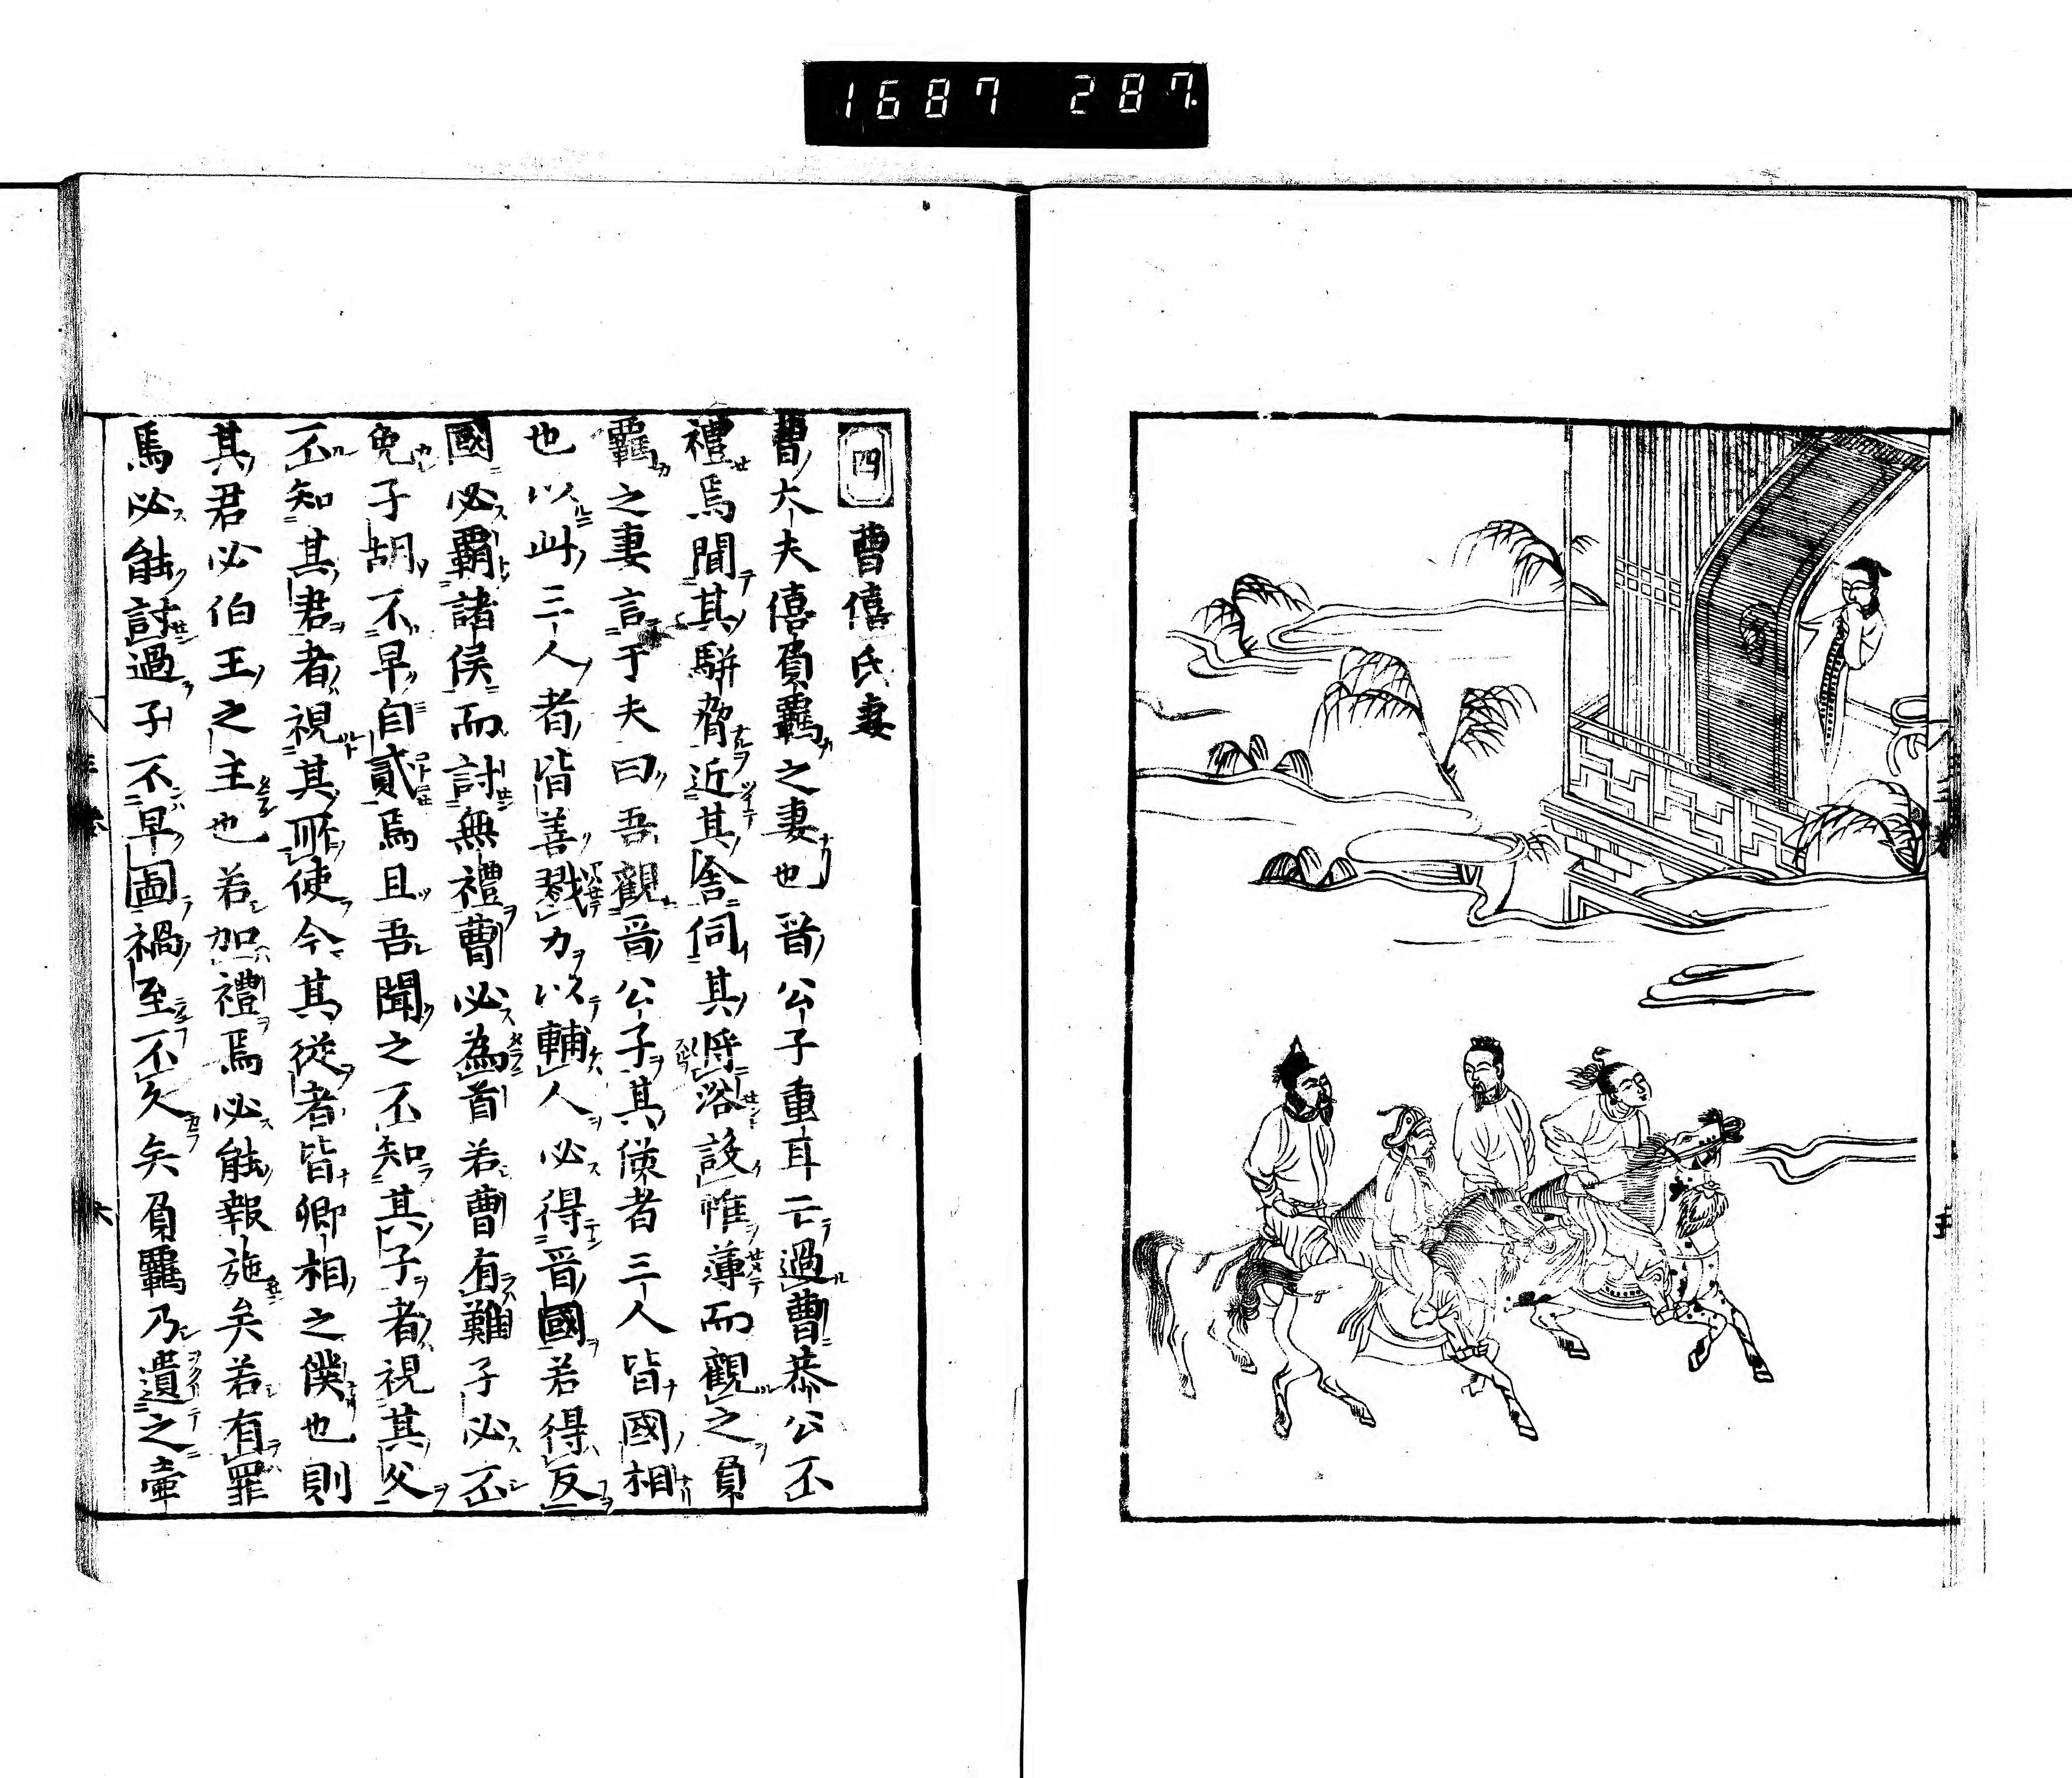 1687 287.
四 曹僖氏妻
曹大夫僖負羈之妻也晉公子重耳亡過曹恭公不
禮焉聞其駢脅近其舍伺其將浴設帷薄而觀之負
羈之妻言于夫曰吾觀晉公子其從者三人皆國相
也以此三人者皆善戮力以輔人必得晉國若得反
國必霸諸侯而討無禮曹必為首若曹有難子必不
免子胡不早自貳焉且吾聞之不知其子者視其父
不知其君者視其所使今其從者皆卿相之僕也則
其君必伯王之主也若加禮焉必能報施矣若有罪
焉必能討過子不早圖禍至不久矣負羈乃遺之壷